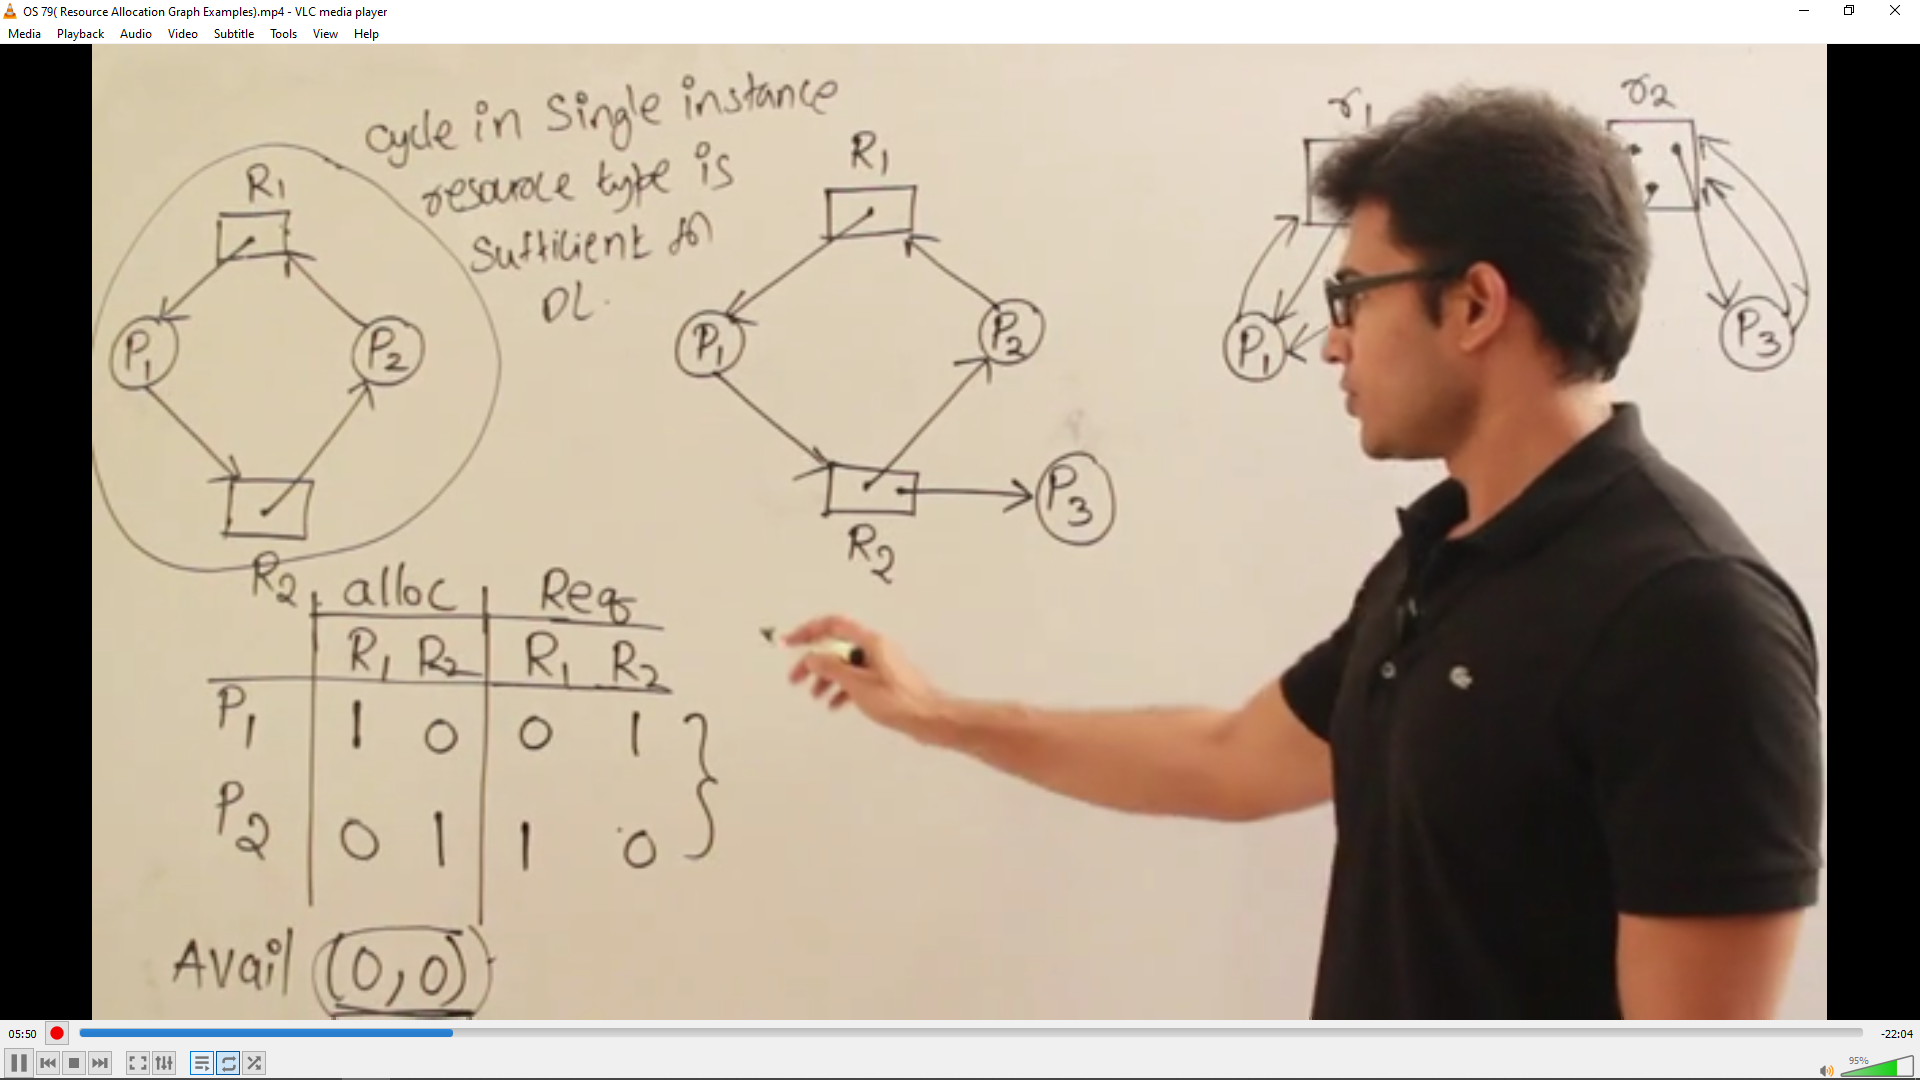 OS 79( Resource Allocation Graph Examples).mp4 - VLC media player
Media Playback Audio Video Subtitle Tools View Help
cycle in Single instance
resource type is
Sufficient for
DL.
R1
P1 P2
R2
R1
P1 P2
R2
P3
r1 r2
P1 P3
alloc Req
R1 R2 R1 R2
P1 1 0 0 1
P2 0 1 1 0
Avail (0,0)
05:50 -22:04
95%